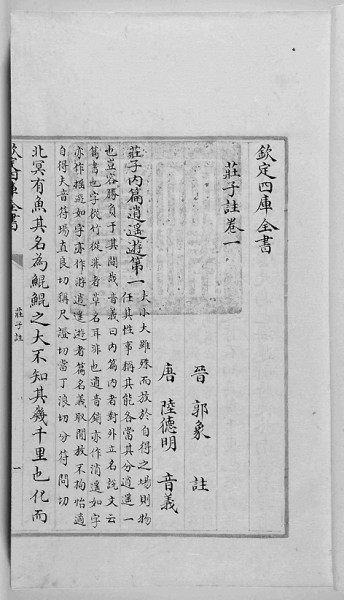 欽定四庫全書
莊子註卷一
晉 郭象 註
唐 陸德明 音義
莊子內篇逍遙遊第一
大小大雖殊而放於自得之場則物
任其性事稱其能各當其分逍遙一
也豈容勝負于其間哉音義曰內篇內者對外立名說文云
篇書也字從竹從艸者草名耳非也逍音銷亦作消遙如字
亦作搖遊如字亦作游逍遙遊者篇名義取閒放不拘怡適
自得夫音符場直良切稱尺證切當丁浪切分符問切
北冥有魚其名為鯤鯤之大不知其幾千里也化而
欽定四庫全書
莊子註
一